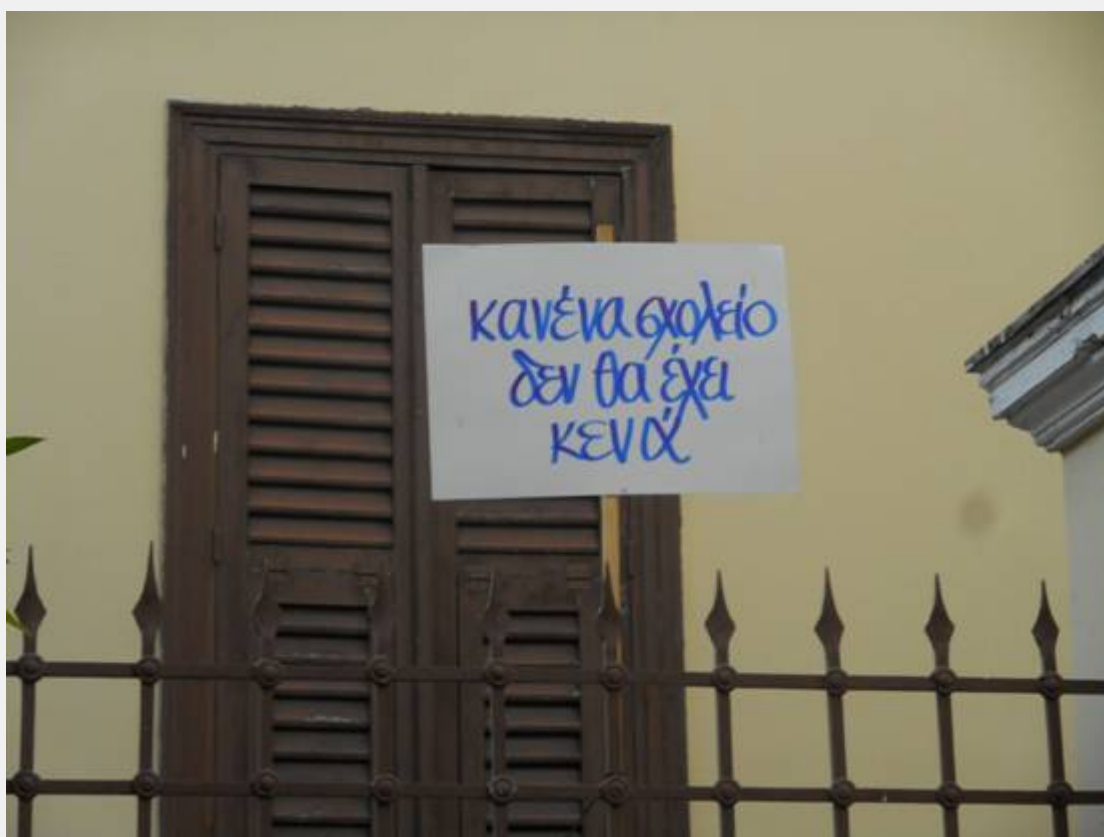 κανένα σχολείο
δεν θα έχει
κενά